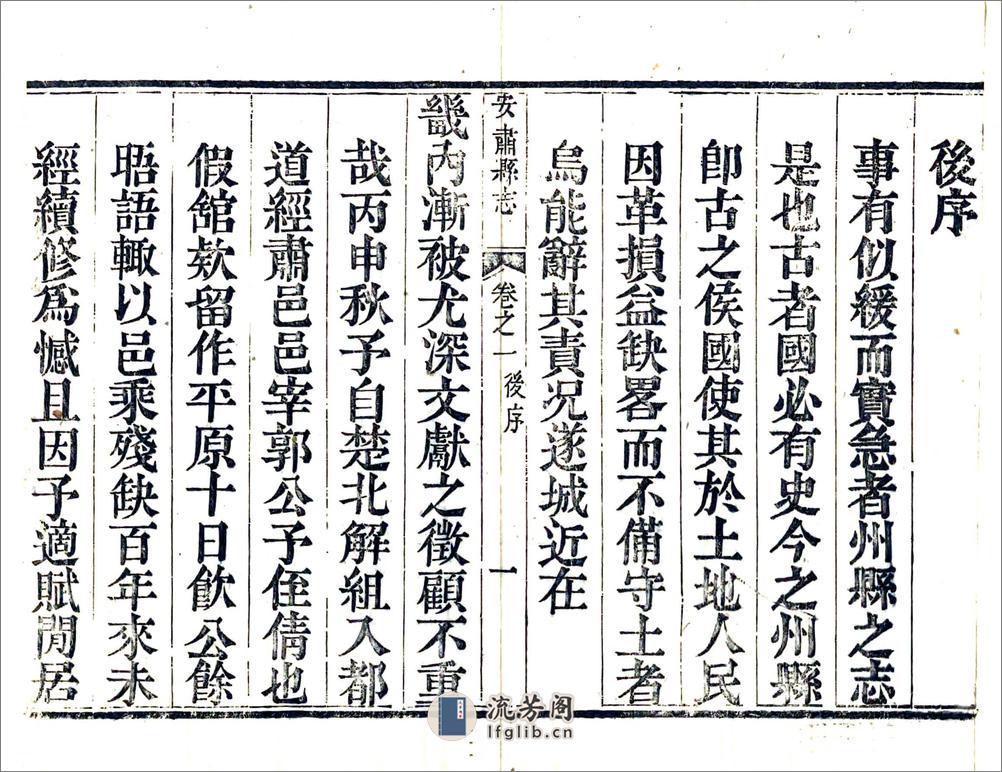 後序
事有似緩而實急者州縣之志
是也古者國必有史今之州縣
卽古之侯國使其於土地人民
因革損益缺畧而不備守土者
烏能辭其責況遂城近在
安肅縣志 卷之一 後序 一
畿內漸被尤深文獻之徵顧不重
哉丙申秋予自楚北解組入都
道經肅邑邑宰郭公予侄倩也
假舘欵留作平原十日飲公餘
晤語輙以邑乘殘缺百年來未
經續修爲憾且因予適賦閒居
流芳阁
lfglib.cn